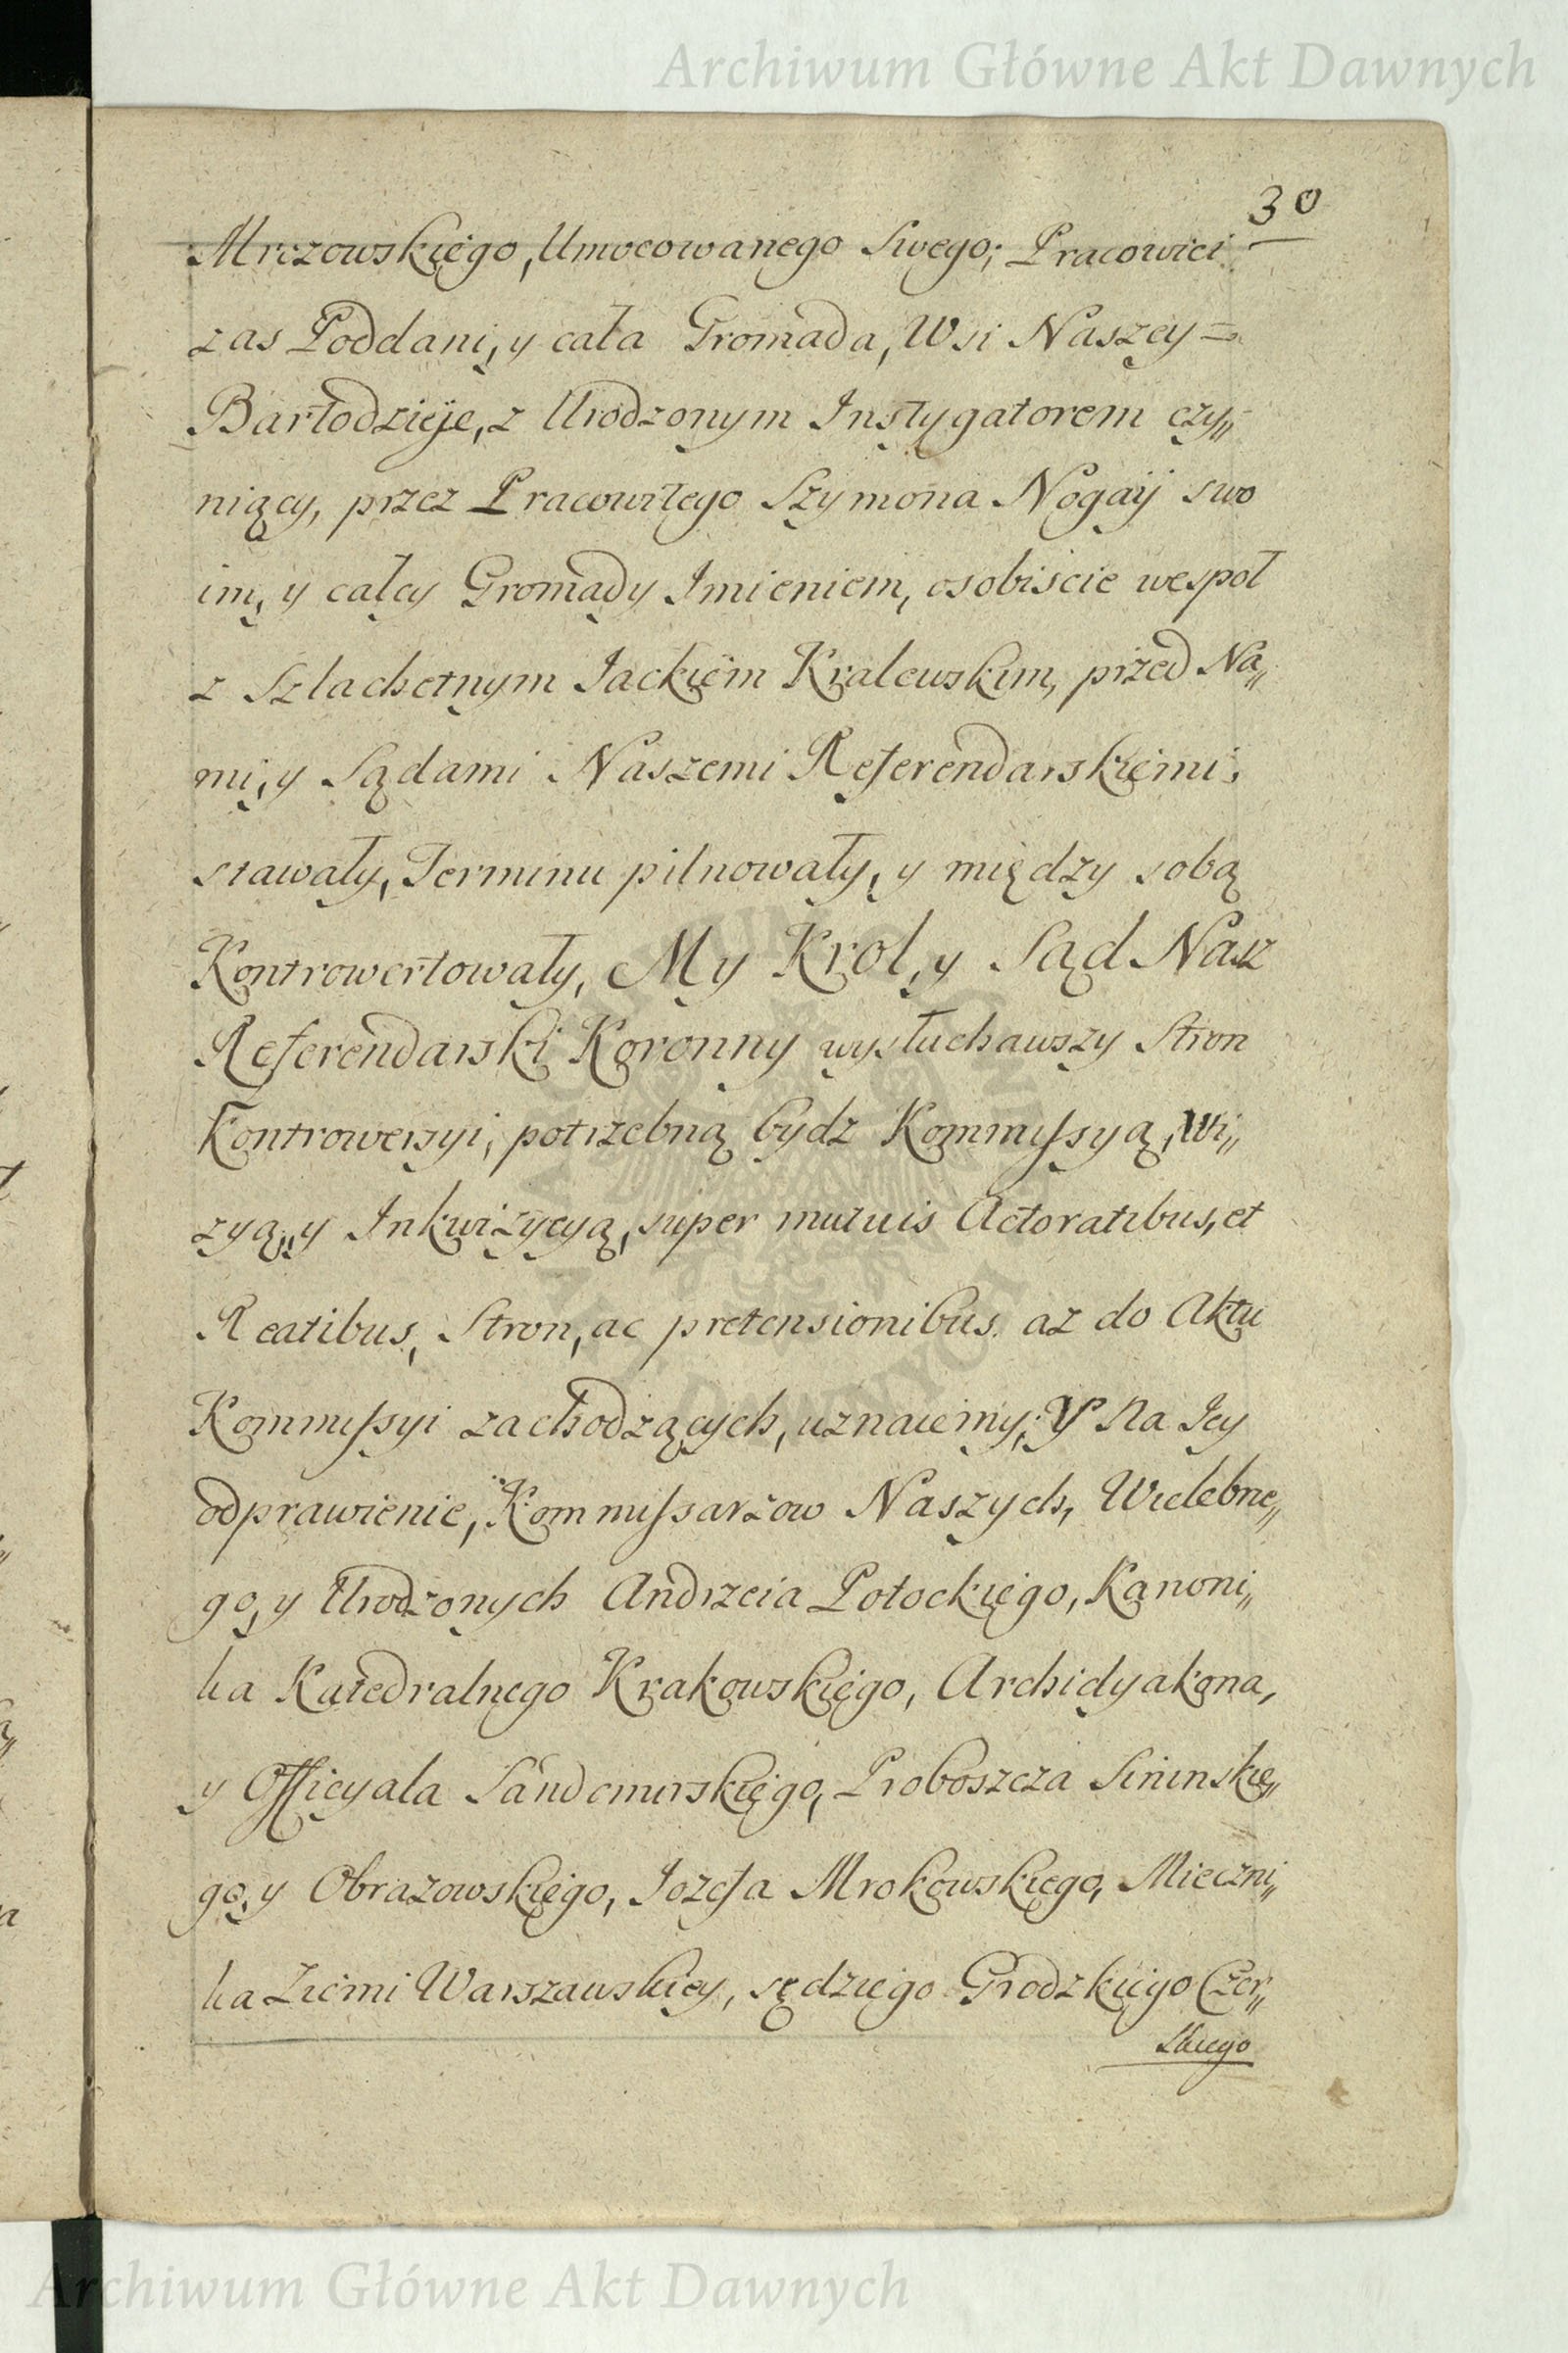 Archiwum Główne Akt Dawnych
30
Mrozowskiego, Umocowanego Swego; Pracowici
zas Poddani, y cała Gromada, Wsi Naszey =
Bartodzieje, z Urodzonym Instygatorem czy„
niący, przez Pracowitego Szymona Nogay swo
im, y całey Gromady Imieniem, osobiscie wespoł
z Szlachetnym Jackiem Kralewskim, przed Na„
mi, y Sądami Naszemi Referendarskiemi,
stawały, Terminu pilnowały, y między sobą
Kontrowertowały, My Krol, y Sąd Nasz
Referendarski Koronny wysłuchawszy Stron
Kontrowersyi, potrzebną bydz Kommissyą, Wi„
zyą, y Inkwizycyą, super mutuis Actoratibus, et
Reatibus, Stron, ac pretensionibus az do Aktu
Kommissyi zachodzących, uznaiemy; Y Na Jey
odprawienie, Kommissarzow Naszych, Wielebne„
go, y Urodzonych Andrzeia Potockiego, Kanoni„
ka Katedralnego Krakowskiego, Archidyakona,
y Officyala Sandomirskiego, Proboszcza
go, y Obrazowskiego, Jozefa Mrokowskiego, Mieczni„
ka Ziemi Warszawskiey, sędziego Grodzkiego Czer„
skiego
Archiwum Główne Akt Dawnych